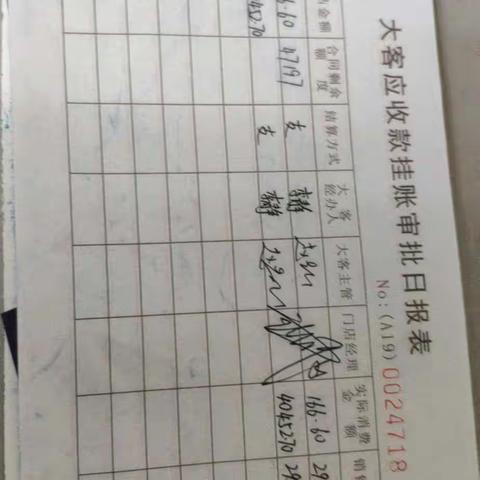 大客应收款挂账审批日报表
No:(A19) 0024718
金额 合同剩余额度 结算方式 大客经办人 大客主管 门店经理 实际消费金额 销
6.60 47197 支 李静 166.60 29
4045270 支 李静 4045270 29